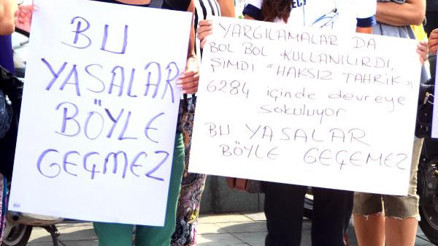 BU
YASALAR
BÖYLE
GEÇMEZ
YARGILAMALAR DA
BOL BOL KULLANILIRDI,
ŞİMDİ "HAKSIZ TAHRİK"
6284 içinde devreye
sokuluyor
BU YASALAR
BÖYLE GEÇEMEZ